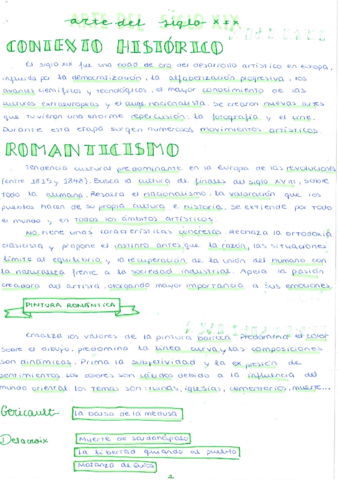 arte del siglo XIX
CONTEXTO HISTÓRICO
El siglo XIX fue una edad de oro del desarrollo artístico en Europa,
influido por la democratización, la alfabetización progresiva, los
avances científicos y tecnológicos, el mayor conocimiento de las
culturas extraeuropeas y el auge nacionalista. Se crearon nuevas artes
que tuvieron una enorme repercusión: la fotografía y el cine.
Durante esta etapa surgen numerosos movimientos artísticos.
ROMANTICISMO
Tendencia cultural predominante en la Europa de las revoluciones
(entre 1815 y 1848). Busca la cultura de finales del siglo XVIII, sobre
todo la alemana. Resalta el nacionalismo: la valoración que los
pueblos hacen de su propia cultura e historia. Se extiende por todo
el mundo y en todos los ámbitos artísticos.
No tiene unas características concretas. Rechaza la ortodoxia
clasicista y propone el instinto antes que la razón, las situaciones
límite al equilibrio, y la recuperación de la unión del humano con
la naturaleza frente a la sociedad industrial. Aprecia la pasión
creadora del artista, otorgando mayor importancia a sus emociones.
PINTURA ROMÁNTICA
Ensalza los valores de la pintura barroca. Predomina el color
sobre el dibujo, predomina la línea curva y las composiciones
son dinámicas. Prima la subjetividad y la expresión de
sentimientos. Los colores son cálidos debido a la influencia del
mundo oriental. Los temas son: ruinas, iglesias, cementerios, muerte...
Gericault
La balsa de la medusa
Delacroix
Muerte de sardanápalo
La libertad guiando al pueblo
Matanza de Quíos